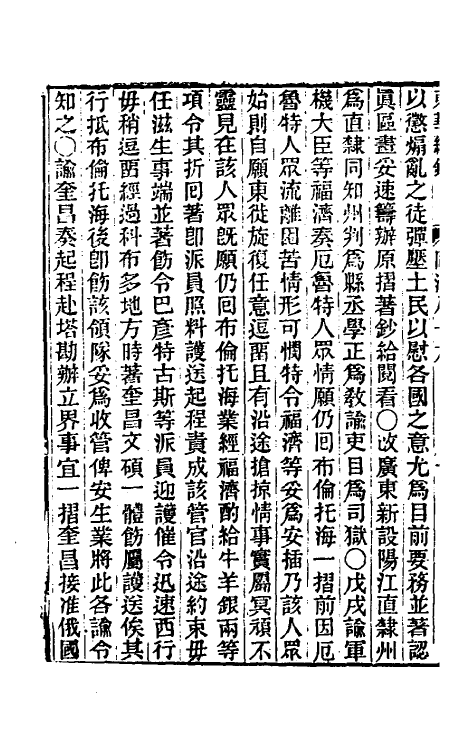 以懲煽亂之徒彈壓土民以慰各國之意尤爲目前要務並著認
眞區畫妥速籌辦原摺著鈔給閱看○改廣東新設陽江直隸州
爲直隸同知州判爲縣丞學正爲敎諭吏目爲司獄○戊戌諭軍
機大臣等福濟奏厄魯特人眾情願仍回布倫托海一摺前因厄
魯特人眾流離困苦情形可憫特令福濟等妥爲安插乃該人眾
始則自願東徙旋復任意逗畱且有沿途搶掠情事實屬冥頑不
靈見在該人眾旣願仍回布倫托海業經福濟酌給牛羊銀兩等
項令其折回著卽派員照料護送起程責成該管官沿途約束毋
任滋生事端並著飭令巴彥特古斯等派員迎護催令迅速西行
毋稍逗畱經過科布多地方時著奎昌文碩一體飭屬護送俟其
行抵布倫托海後卽飭該領隊妥爲收管俾安生業將此各諭令
知之○諭奎昌奏起程赴塔勘辦立界事宜一摺奎昌接准俄國